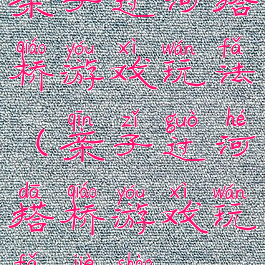 亲子过河搭
qiáo yóu xì wán fǎ
桥游戏玩法
qīn zǐ guò hé
（亲子过河
dā qiáo yóu xì wán
搭桥游戏玩